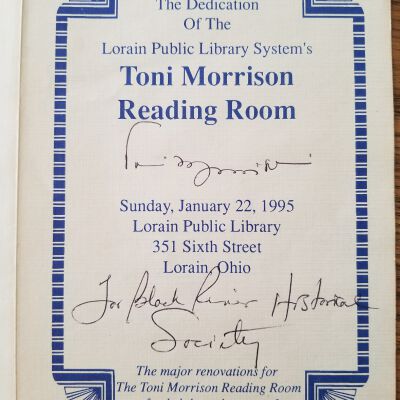 The Dedication
Of The
Lorain Public Library System's
Toni Morrison
Reading Room
Toni Morrison
Sunday, January 22, 1995
Lorain Public Library
351 Sixth Street
Lorain, Ohio
For Black River Historical
Society
The major renovations for
The Toni Morrison Reading Room